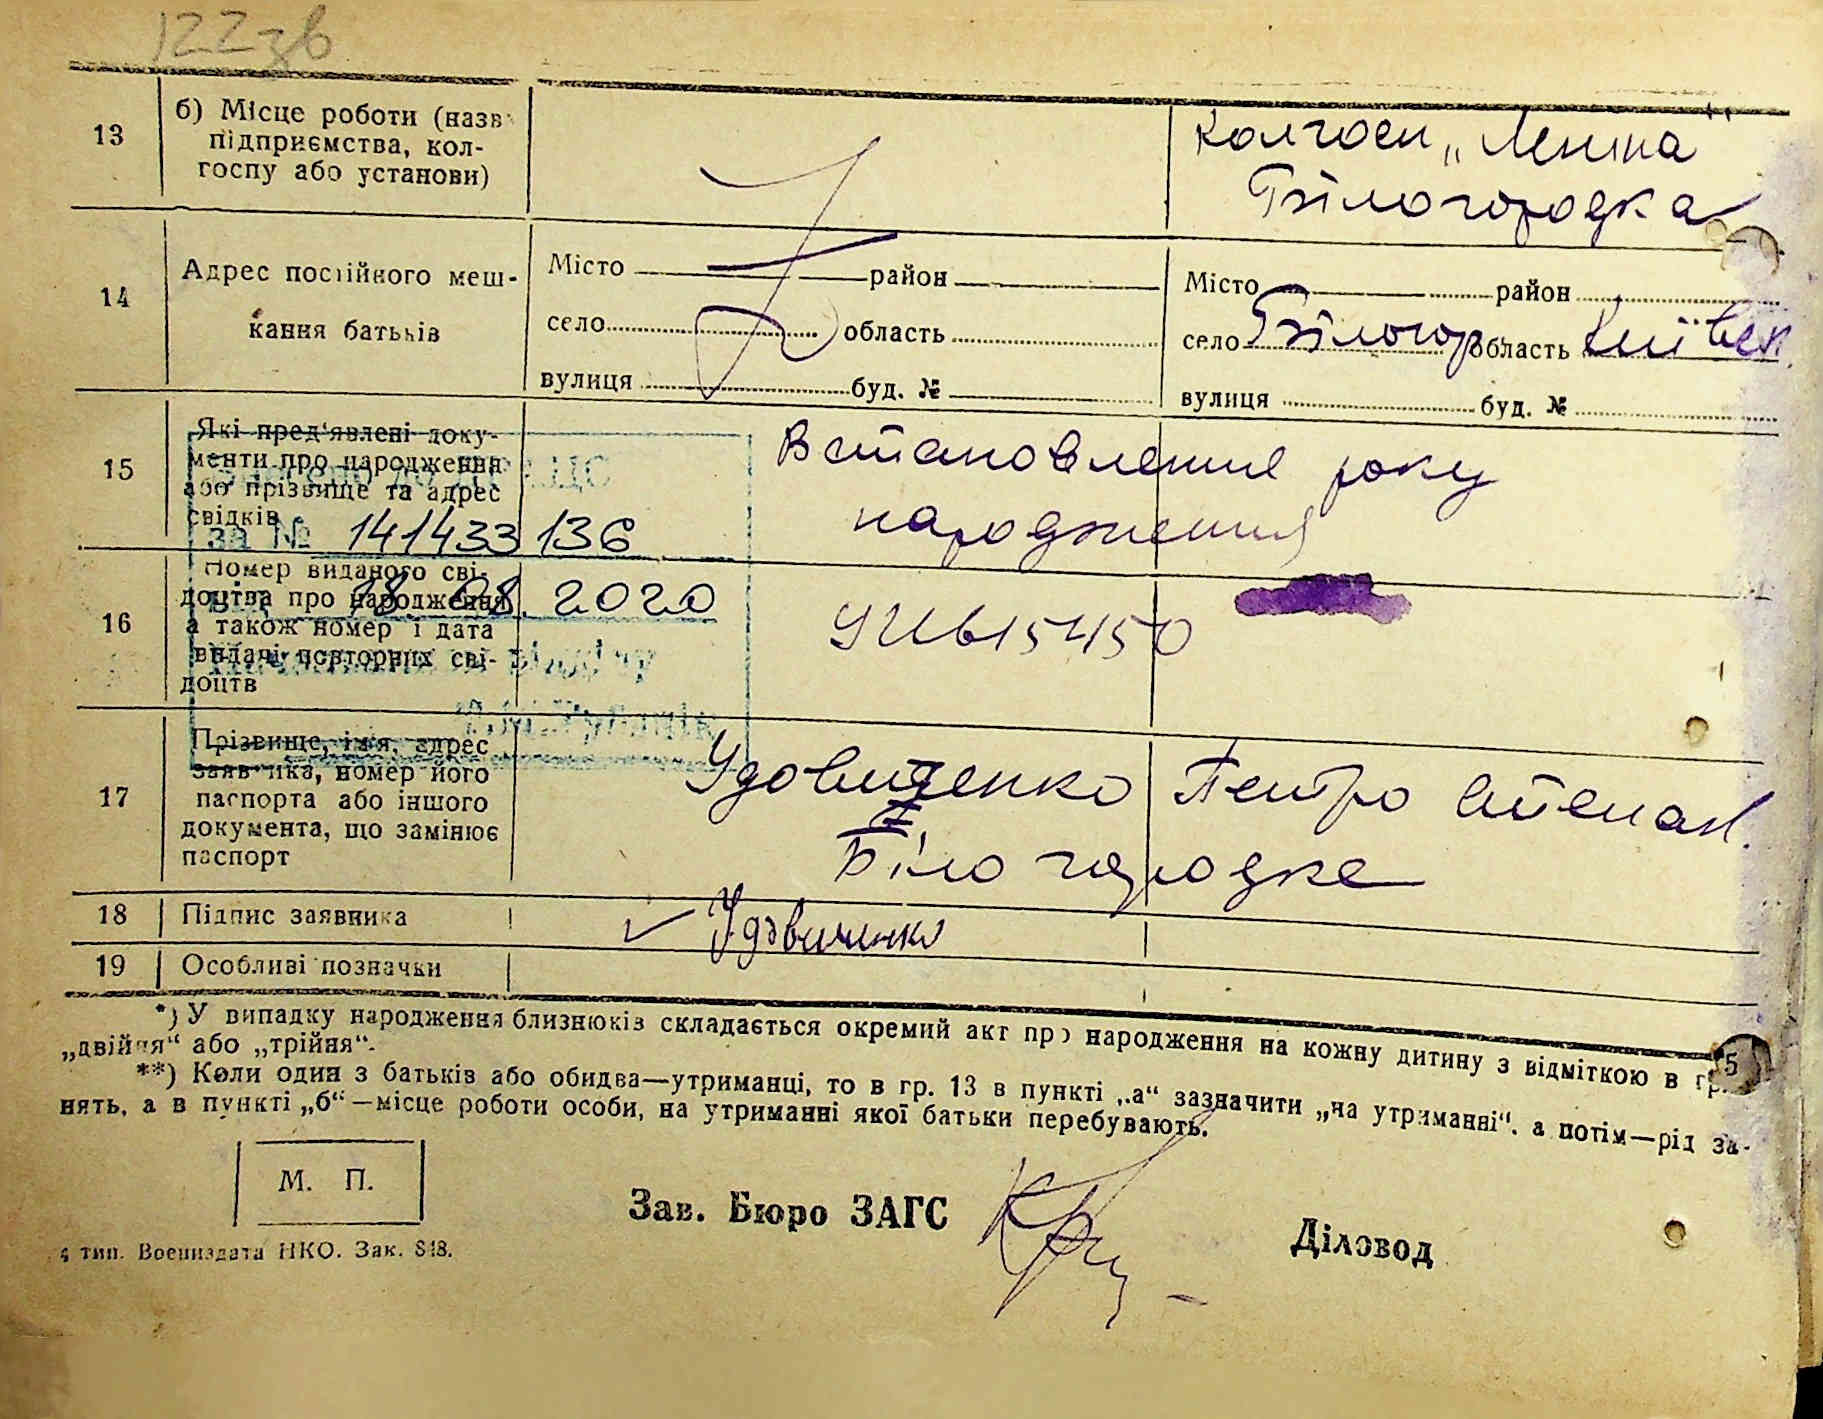 122зв
13
б) Місце роботи (назв
підприємства, кол-
госпу або установи)
Колгосп „Леніна"
Білогородка
14
Адрес постійного меш-
кання батьків
Місто район
село область
вулиця буд. №
Місто район
село Білогор. область Київськ.
вулиця буд. №
15
Які пред'явлені доку-
менти про народження
або прізвище та адрес
свідків
Встановление року
народження
за № 141433136
18.08.2020
16
Номер виданого сві-
доцтва про народження
а також номер і дата
видачі повторних сві-
доцтв
615450
17
Прізвище, ім'я, адрес
заявника, номер його
паспорта або іншого
документа, що замінює
паспорт
Удовиченко Петро Степан.
Білогородка
18 Підпис заявника
Удовиченко
19 Особливі позначки
*) У випадку народження близнюків складається окремий акт про народження на кожну дитину з відміткою в гр. 5
„двійня“ або „трійня“.
**) Коли один з батьків або обидва—утриманці, то в гр. 13 в пункті „а“ зазначити „на утриманні“, а потім—рід за-
нять, а в пункті „б“—місце роботи особи, на утриманні якої батьки перебувають.
М. П.
Зав. Бюро ЗАГС
Діловод
4 тип. Воениздата НКО. Зак. 848.